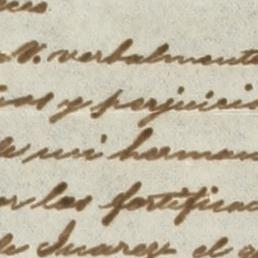 V. verbalmente
y perjuicio
de mi herman
or las fortifica
de Juarez el